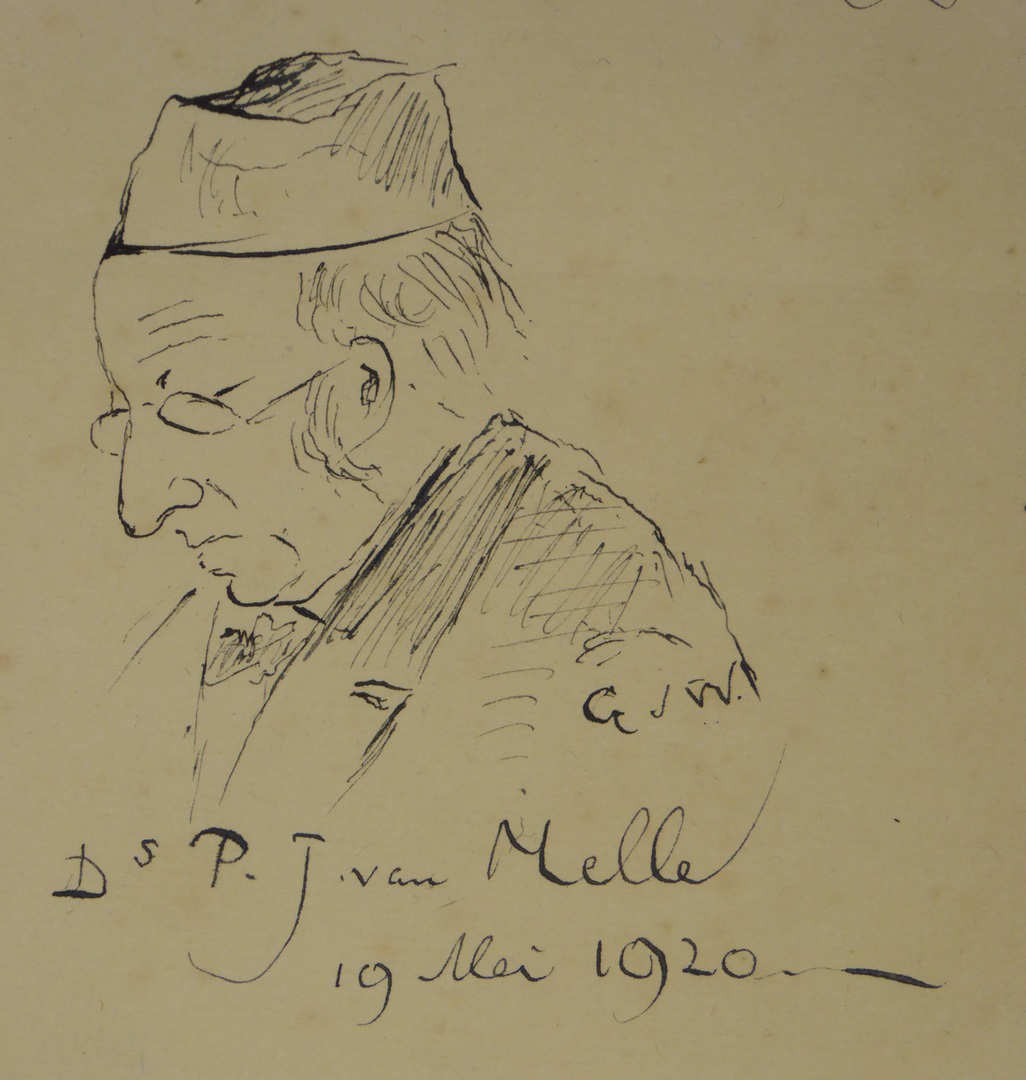 G J W.
Ds P. J. van Melle
19 Mei 1920